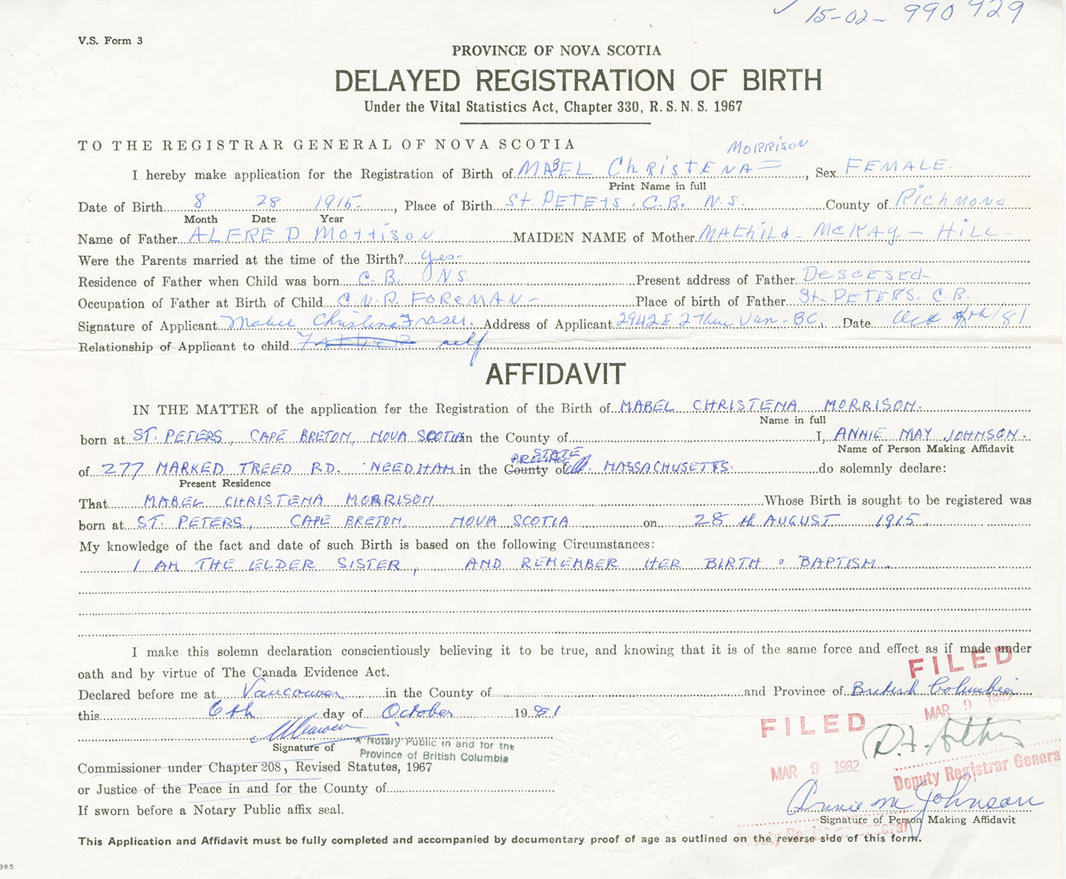 15-02- 990 929
V.S. Form 3
PROVINCE OF NOVA SCOTIA
DELAYED REGISTRATION OF BIRTH
Under the Vital Statistics Act, Chapter 330, R.S.N.S. 1967
TO THE REGISTRAR GENERAL OF NOVA SCOTIA
MORRISON
I hereby make application for the Registration of Birth of MABEL ChRiSTENA, Sex FEMALE.
Print Name in full
Date of Birth 8 28 1915, Place of Birth St PETErs. C.B. N.S. County of RiChmond
Month Date Year
Name of Father ALFRED Morrison MAIDEN NAME of Mother MAThild- McKAY - HILL-
Were the Parents married at the time of the Birth? yes-
Residence of Father when Child was born C.B. NS. Present address of Father DESCESED-
Occupation of Father at Birth of Child C.N.R. FOREMAN- Place of birth of Father St. PETERS. C.B.
Signature of Applicant Mabel Christina Fraser. Address of Applicant 2942 E 2 Van-BC, Date Oct /81
Relationship of Applicant to child self
AFFIDAVIT
IN THE MATTER of the application for the Registration of the Birth of MABEL CHRISTENA MORRISON.
Name in full
born at ST. PETERS, CAPE BRETON, NOVA SCOTIA in the County of I, ANNIE MAY JOHNSON.
Name of Person Making Affidavit
STATE
of 277 MARKED TREED RD. NEEDHAM in the County of MASSACHUSETTS. do solemnly declare:
Present Residence
That MABEL CHRISTENA MORRISON Whose Birth is sought to be registered was
born at ST. PETERS, CAPE BRETON, NOVA SCOTIA on 28 th AUGUST 1915.
My knowledge of the fact and date of such Birth is based on the following Circumstances:
I AM THE ELDER SISTER, AND REMEMBER HER BIRTH & BAPTISM.
I make this solemn declaration conscientiously believing it to be true, and knowing that it is of the same force and effect as if made under
oath and by virtue of The Canada Evidence Act.
FILED
Declared before me at Vancouver in the County of and Province of British Columbia
MAR 9
this 6th day of October 1981
FILED
Signature of
A Notary Public in and for the
Province of British Columbia
MAR 9 1982
Deputy Registrar General
Commissioner under Chapter 208, Revised Statutes, 1967
or Justice of the Peace in and for the County of
Annie M Johnson
If sworn before a Notary Public affix seal.
Signature of Person Making Affidavit
This Application and Affidavit must be fully completed and accompanied by documentary proof of age as outlined on the reverse side of this form.